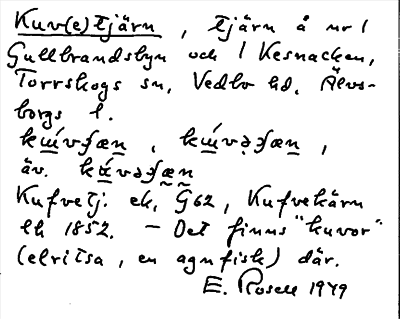 Kuv(e)tjärn, tjärn å nr 1
Gullbrandsbyn och 1 Kesnacken,
Torrskogs sn, Vedbo hd, Älvs-
borgs l.
äv.
Kufvetj. ek. G62, Kufvekärn
lh 1852. – Det finns "kuvor"
(elritsa, en agnfisk) där.
E. Rosell 1949